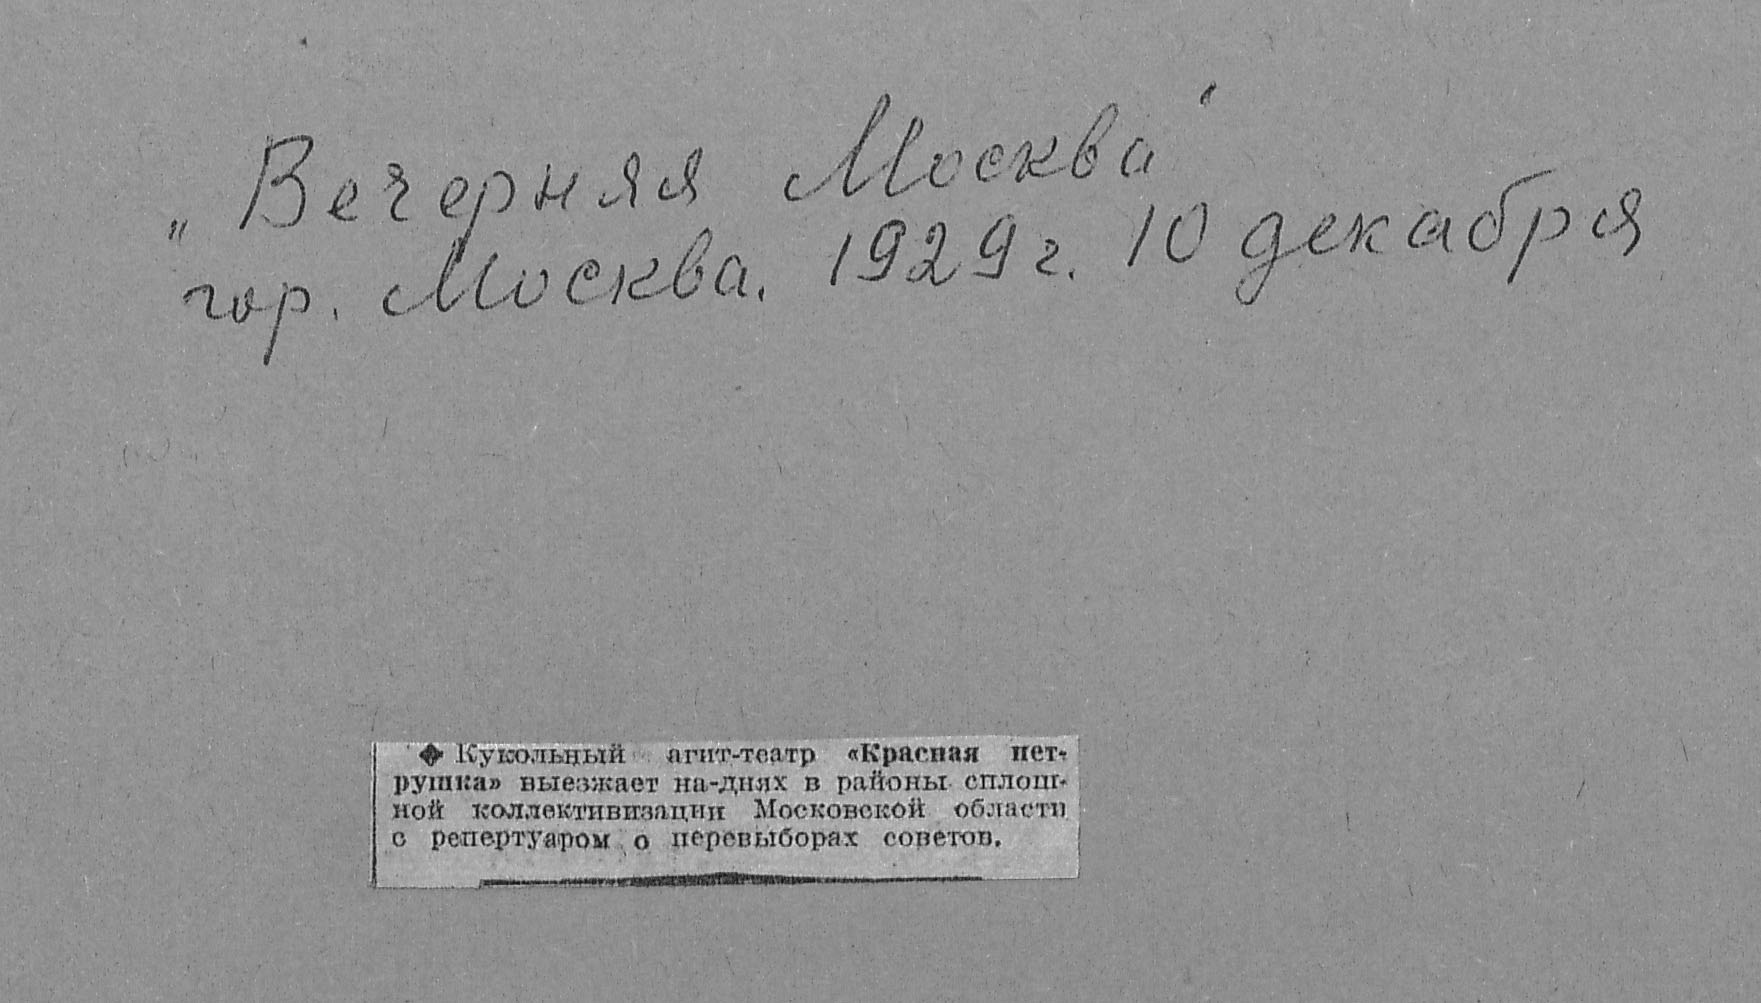 „Вечерняя Москва“
гор. Москва. 1929 г. 10 декабря
◆ Кукольный агит-театр «Красная пет-
рушка» выезжает на-днях в районы сплош-
ной коллективизации Московской области
с репертуаром о перевыборах советов.